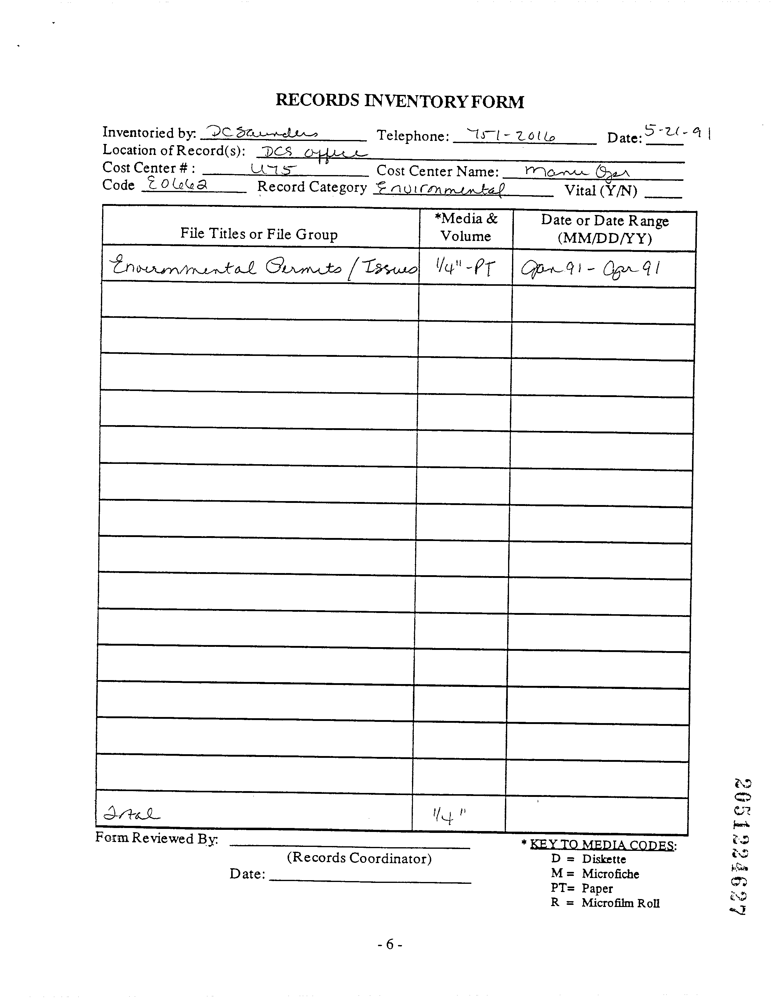 RECORDS INVENTORY FORM
Inventoried by: DC Saunders Telephone: 751-2016 Date: 5-21-91
Location of Record(s): DCS office
Cost Center #: U75 Cost Center Name: Manu Oper
Code E0662 Record Category Environmental Vital (Y/N)
File Titles or File Group *Media & Volume Date or Date Range (MM/DD/YY)
Environmental Permits / Issues 1/4" - PT Jan 91 - Apr 91
Total 1/4"
Form Reviewed By:
(Records Coordinator)
Date:
* KEY TO MEDIA CODES:
D = Diskette
M = Microfiche
PT= Paper
R = Microfilm Roll
- 6 -
2051224627